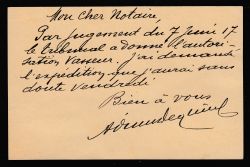 Mon cher Notaire,
Par jugement du 7 Juin 17
le tribunal a donné l'autori-
sation Vasseur. j'ai demandé
l'expédition que j'aurai sans
doute vendredi
Bien à vous